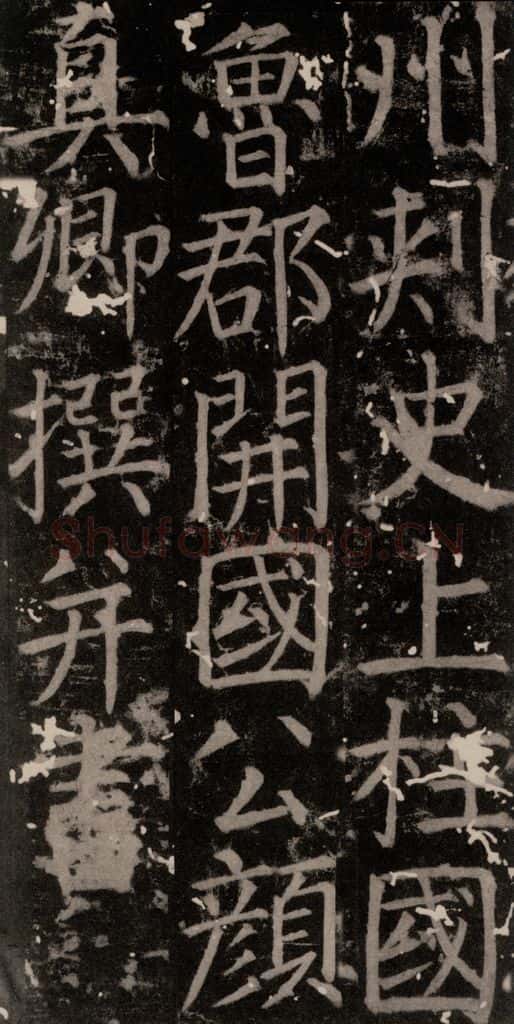 州刺史上柱國
魯郡開國公顏
真卿撰并書
Shufawang.CN